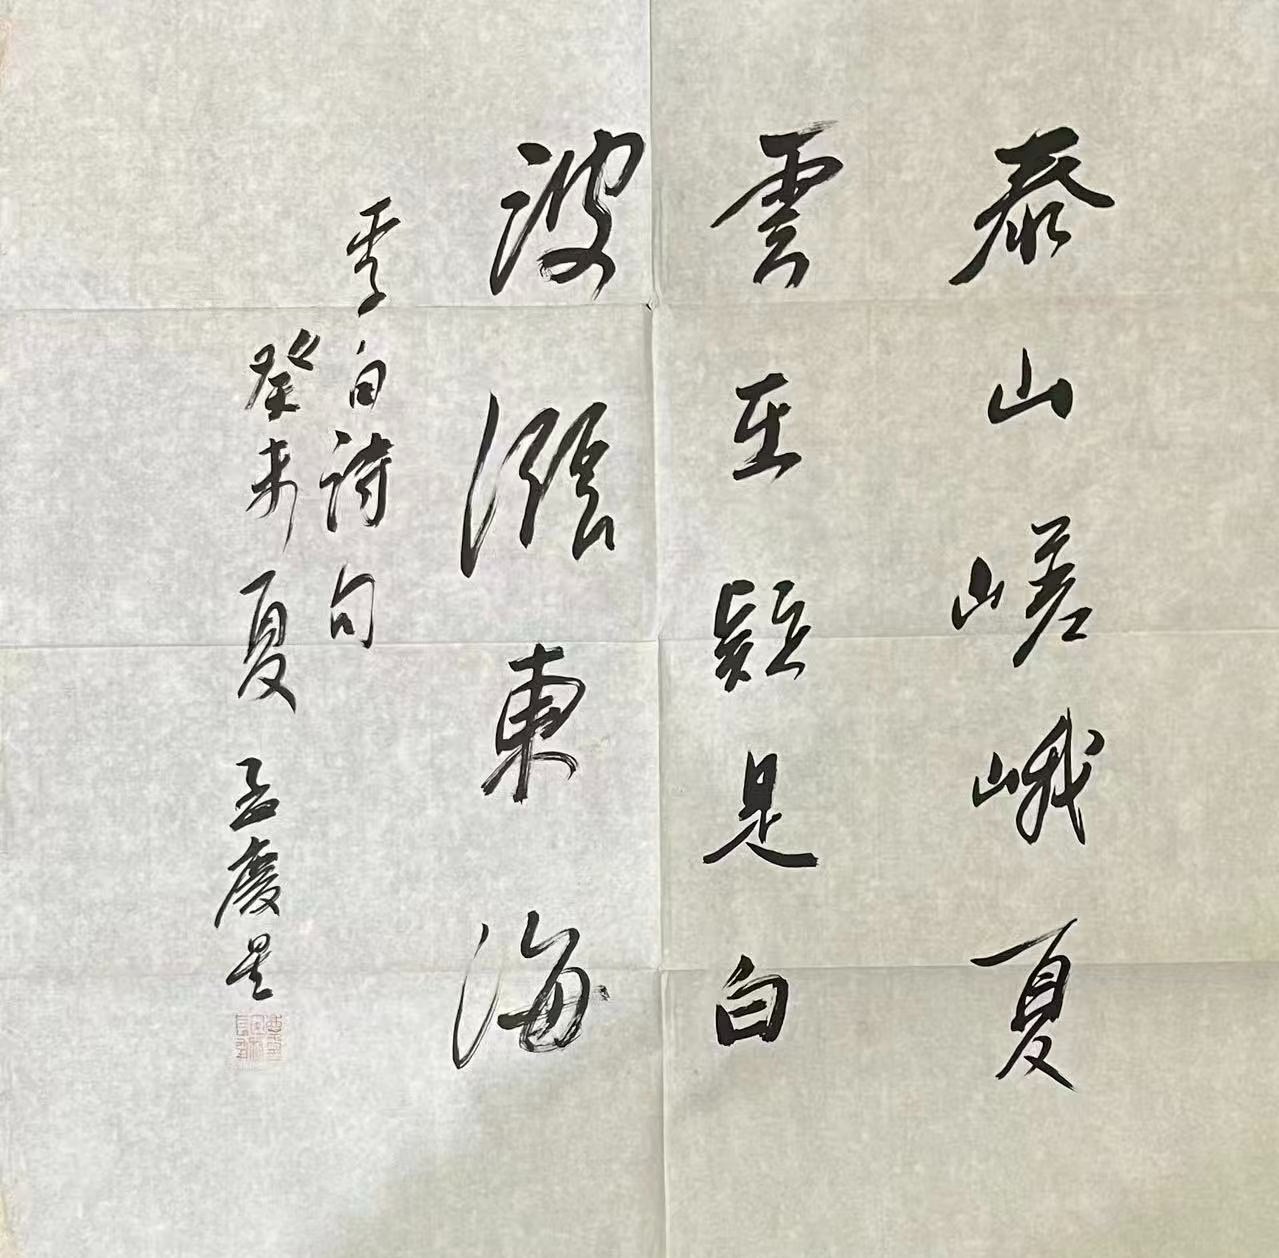 泰山嵯峨夏
雲在疑是白
波漲東海
李白詩句
癸未夏 孟慶星